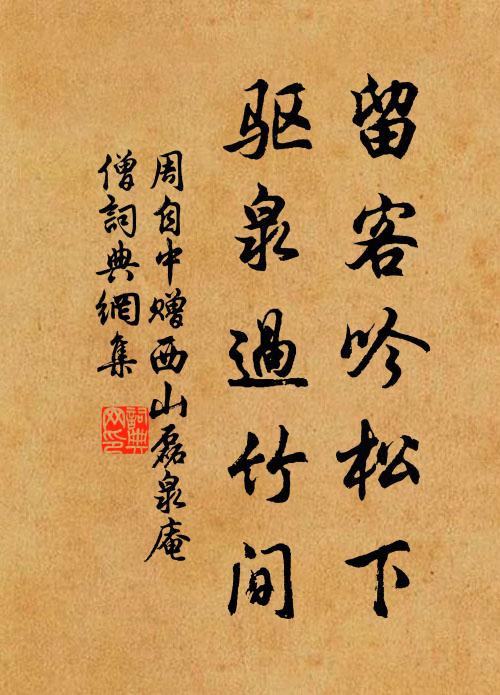 留客吟松下
驱泉過竹间
周自中赠西山磊泉庵
僧詞典網集
詞典網印